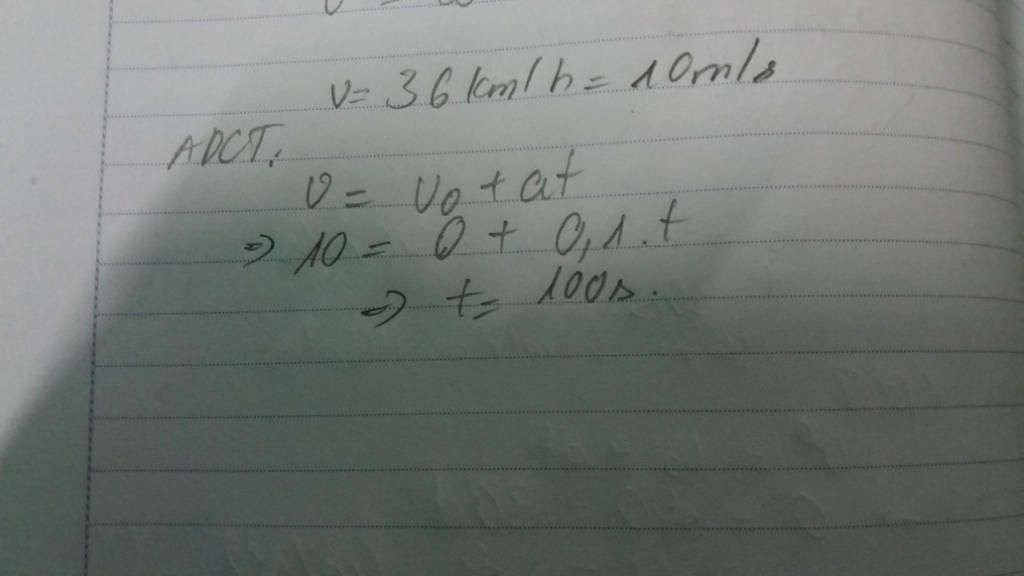 v = 36 km/h = 10m/s
ADCT:
v = v₀ + at
=> 10 = 0 + 0,1.t
=> t = 100s.